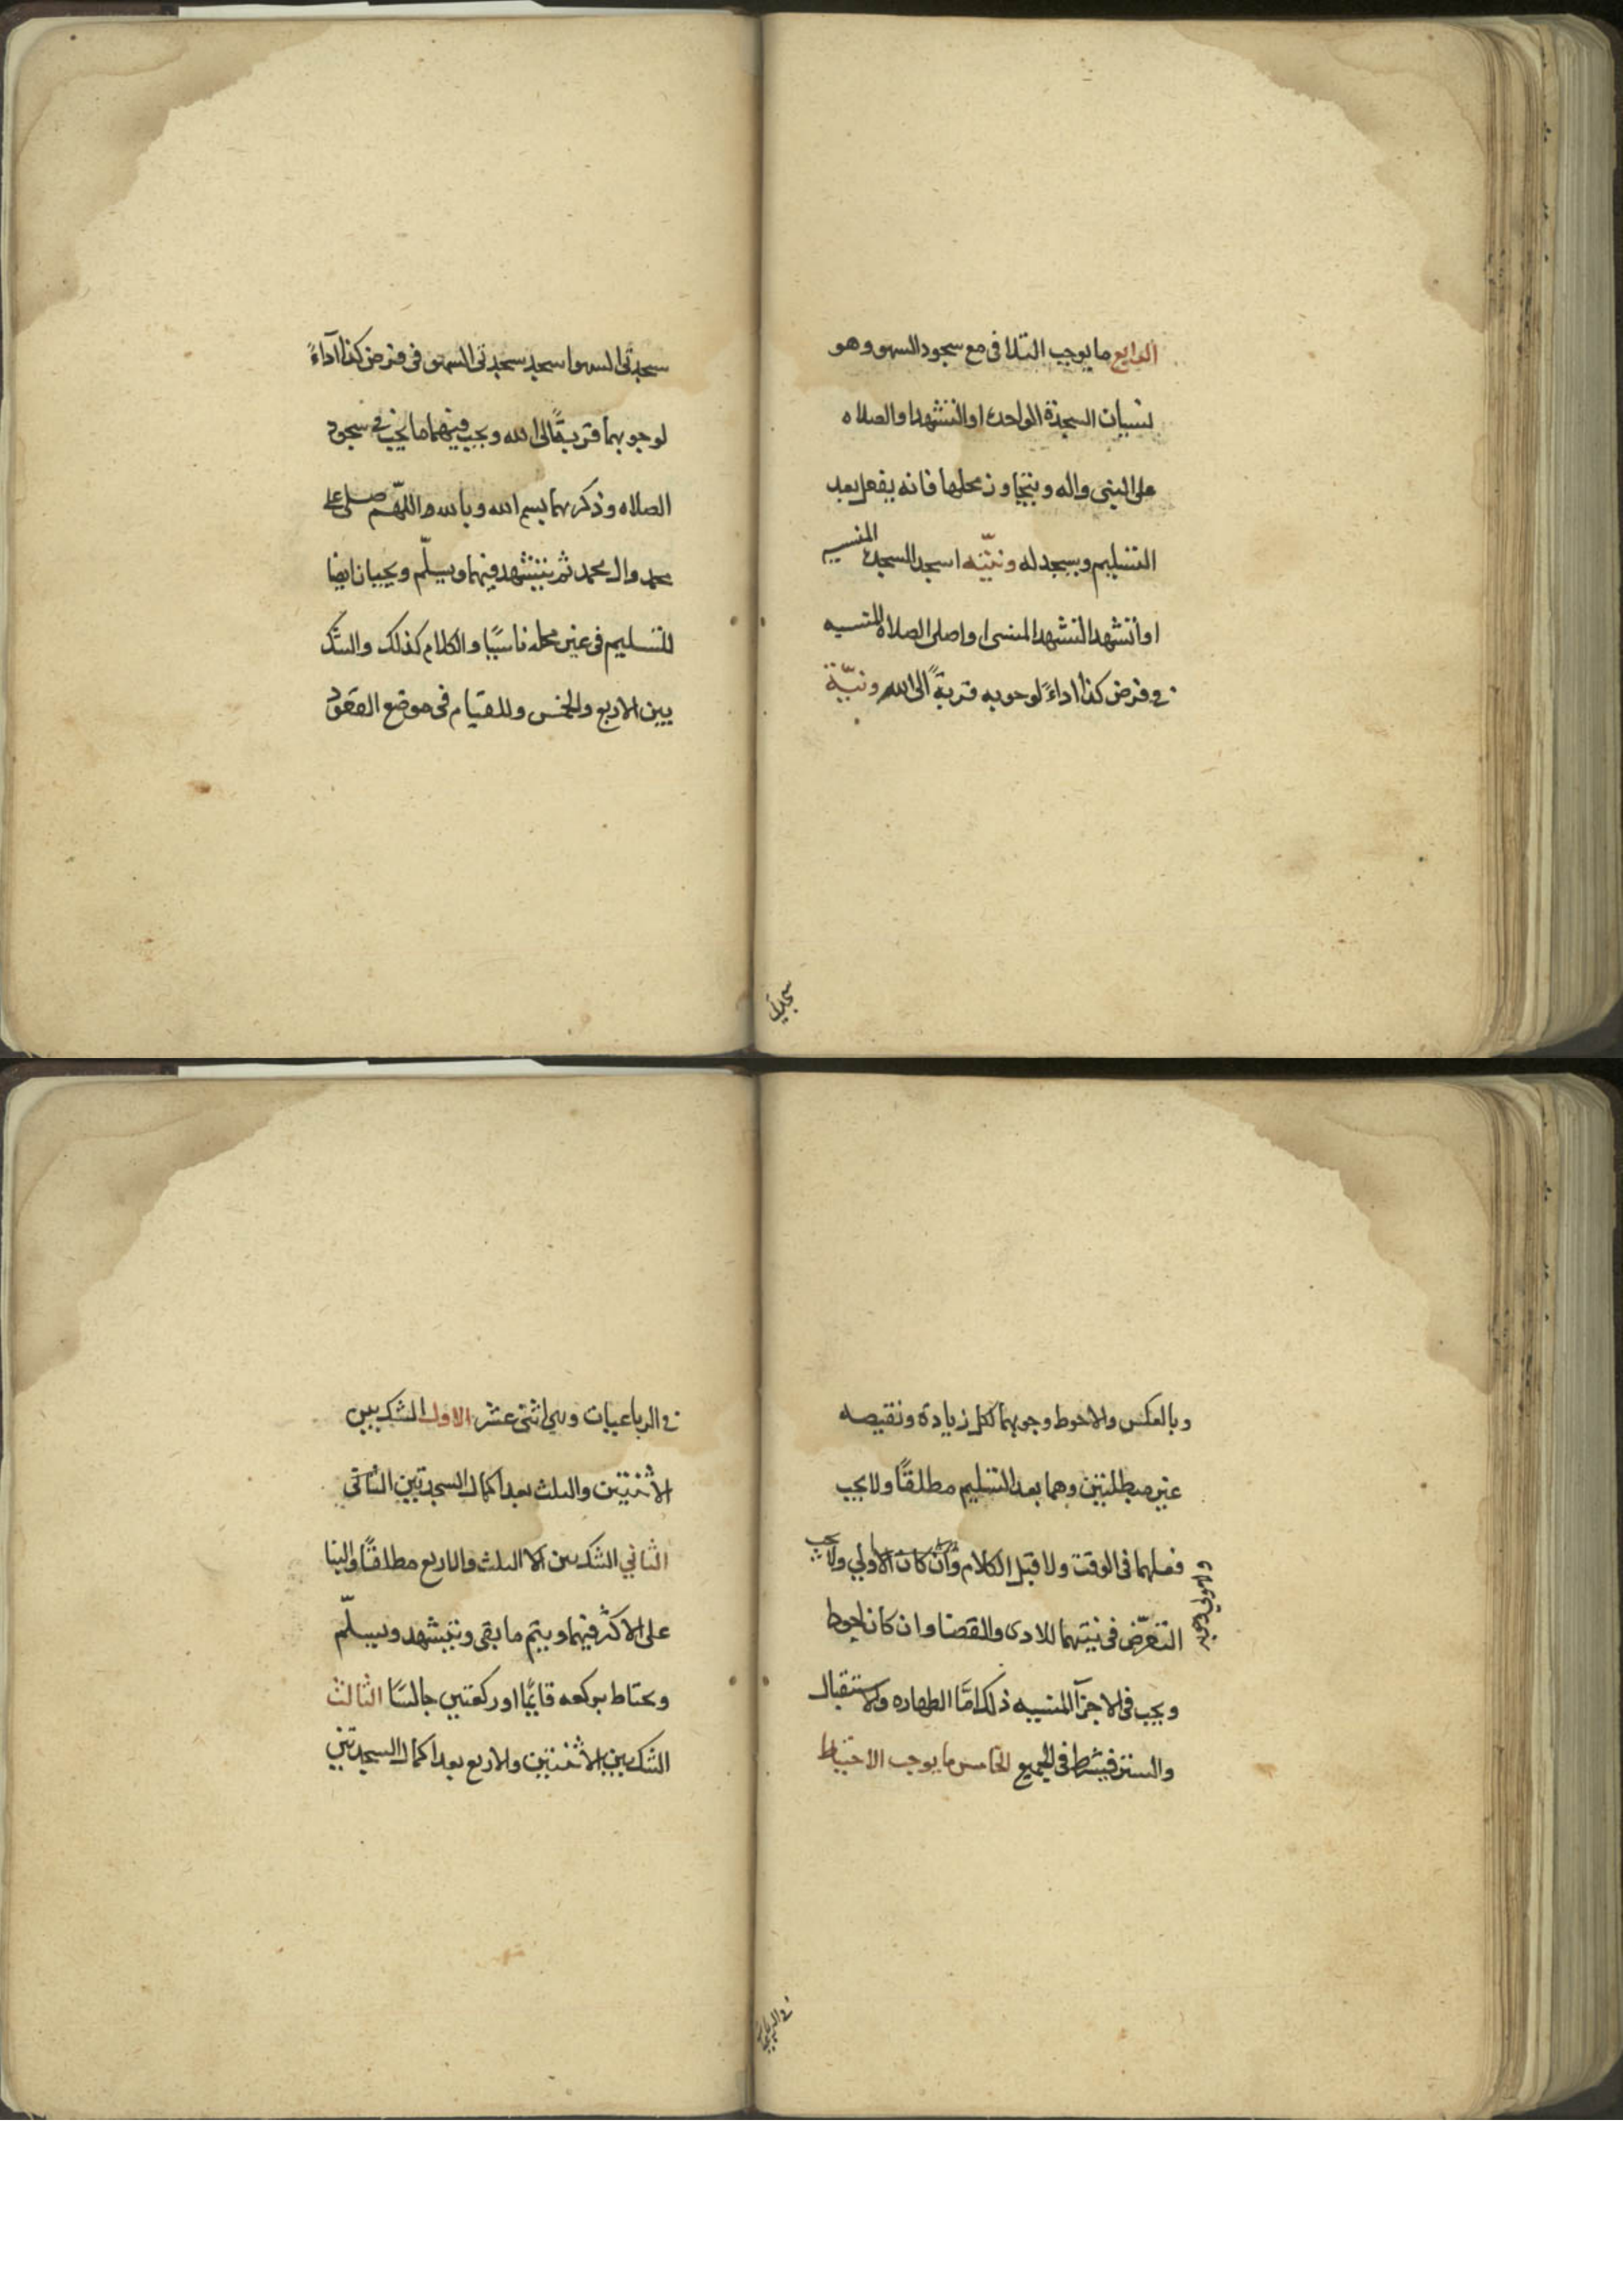 الرابع ما يوجب التلافى مع سجود السهو وهو
نسيان السجدة الواحده او التشهد او الصلاه
على النبى واله ويتجاوز محلها فانه يفعل بعد
التسليم ويسجد له ونيّته اسجد السجده المنسيه
او أتشهد التشهد المنسى او اصلى الصلاة المنسيه
فى فرض كذا اداءً لوجوبه قربةً الى الله ونيّة
سجدتى
سجدتى السهو اسجد سجدتى السهو فى فرض كذا آداءً
لوجوبهما قربةً الى الله ويجب فيهما ما يجب فى سجود
الصلاه وذكرهما بسم الله وبالله واللّهم صل على
محمد وال محمد ثم يتشهد فيهما ويسلّم ويجبان ايضا
للتسليم فى غير محله ناسيًا والكلام كذلك والشك
بين الاربع والخمس وللقيام فى موضع القعود
وبالعكس والاحوط وجوبهما لكل زيادة ونقيصه
غير مبطلتين وهما بعد التسليم مطلقًا ولا يجب
فعلهما فى الوقت ولا قبل الكلام وان كان الأولي ولا يجب
التعرّض فى نيتهما للادى والقضا وان كان احوط
ويجب فى الاجزآ المنسيه ذلك امّا الطهاره والاستقبال
والستر فيشترط فى الجميع الخامس ما يوجب الاحتياط
فى الرباعيات
فى الرباعيات وهي اثنى عشر الاول الشك بين
الأثنتين والثلث بعد اكمال السجدتين الثانى
الثاني الشك بين الثلث والاربع مطلقًا والبنا
على الاكثر فيهما ويتم ما بقى ويتشهد ويسلّم
ويحتاط بركعه قايمًا او ركعتين جالسًا الثالث
الشك بين الأثنتين والاربع بعد اكمال السجدتين